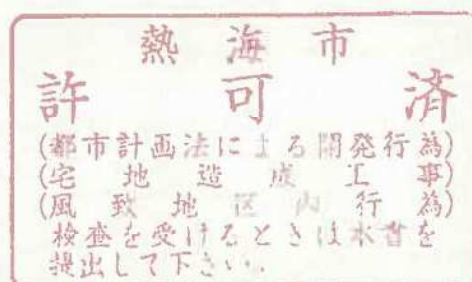 熱海市
許可済
(都市計画法による開発行為)
(宅地造成工事)
(風致地区内行為)
検査を受けるときは本書を
提出して下さい.